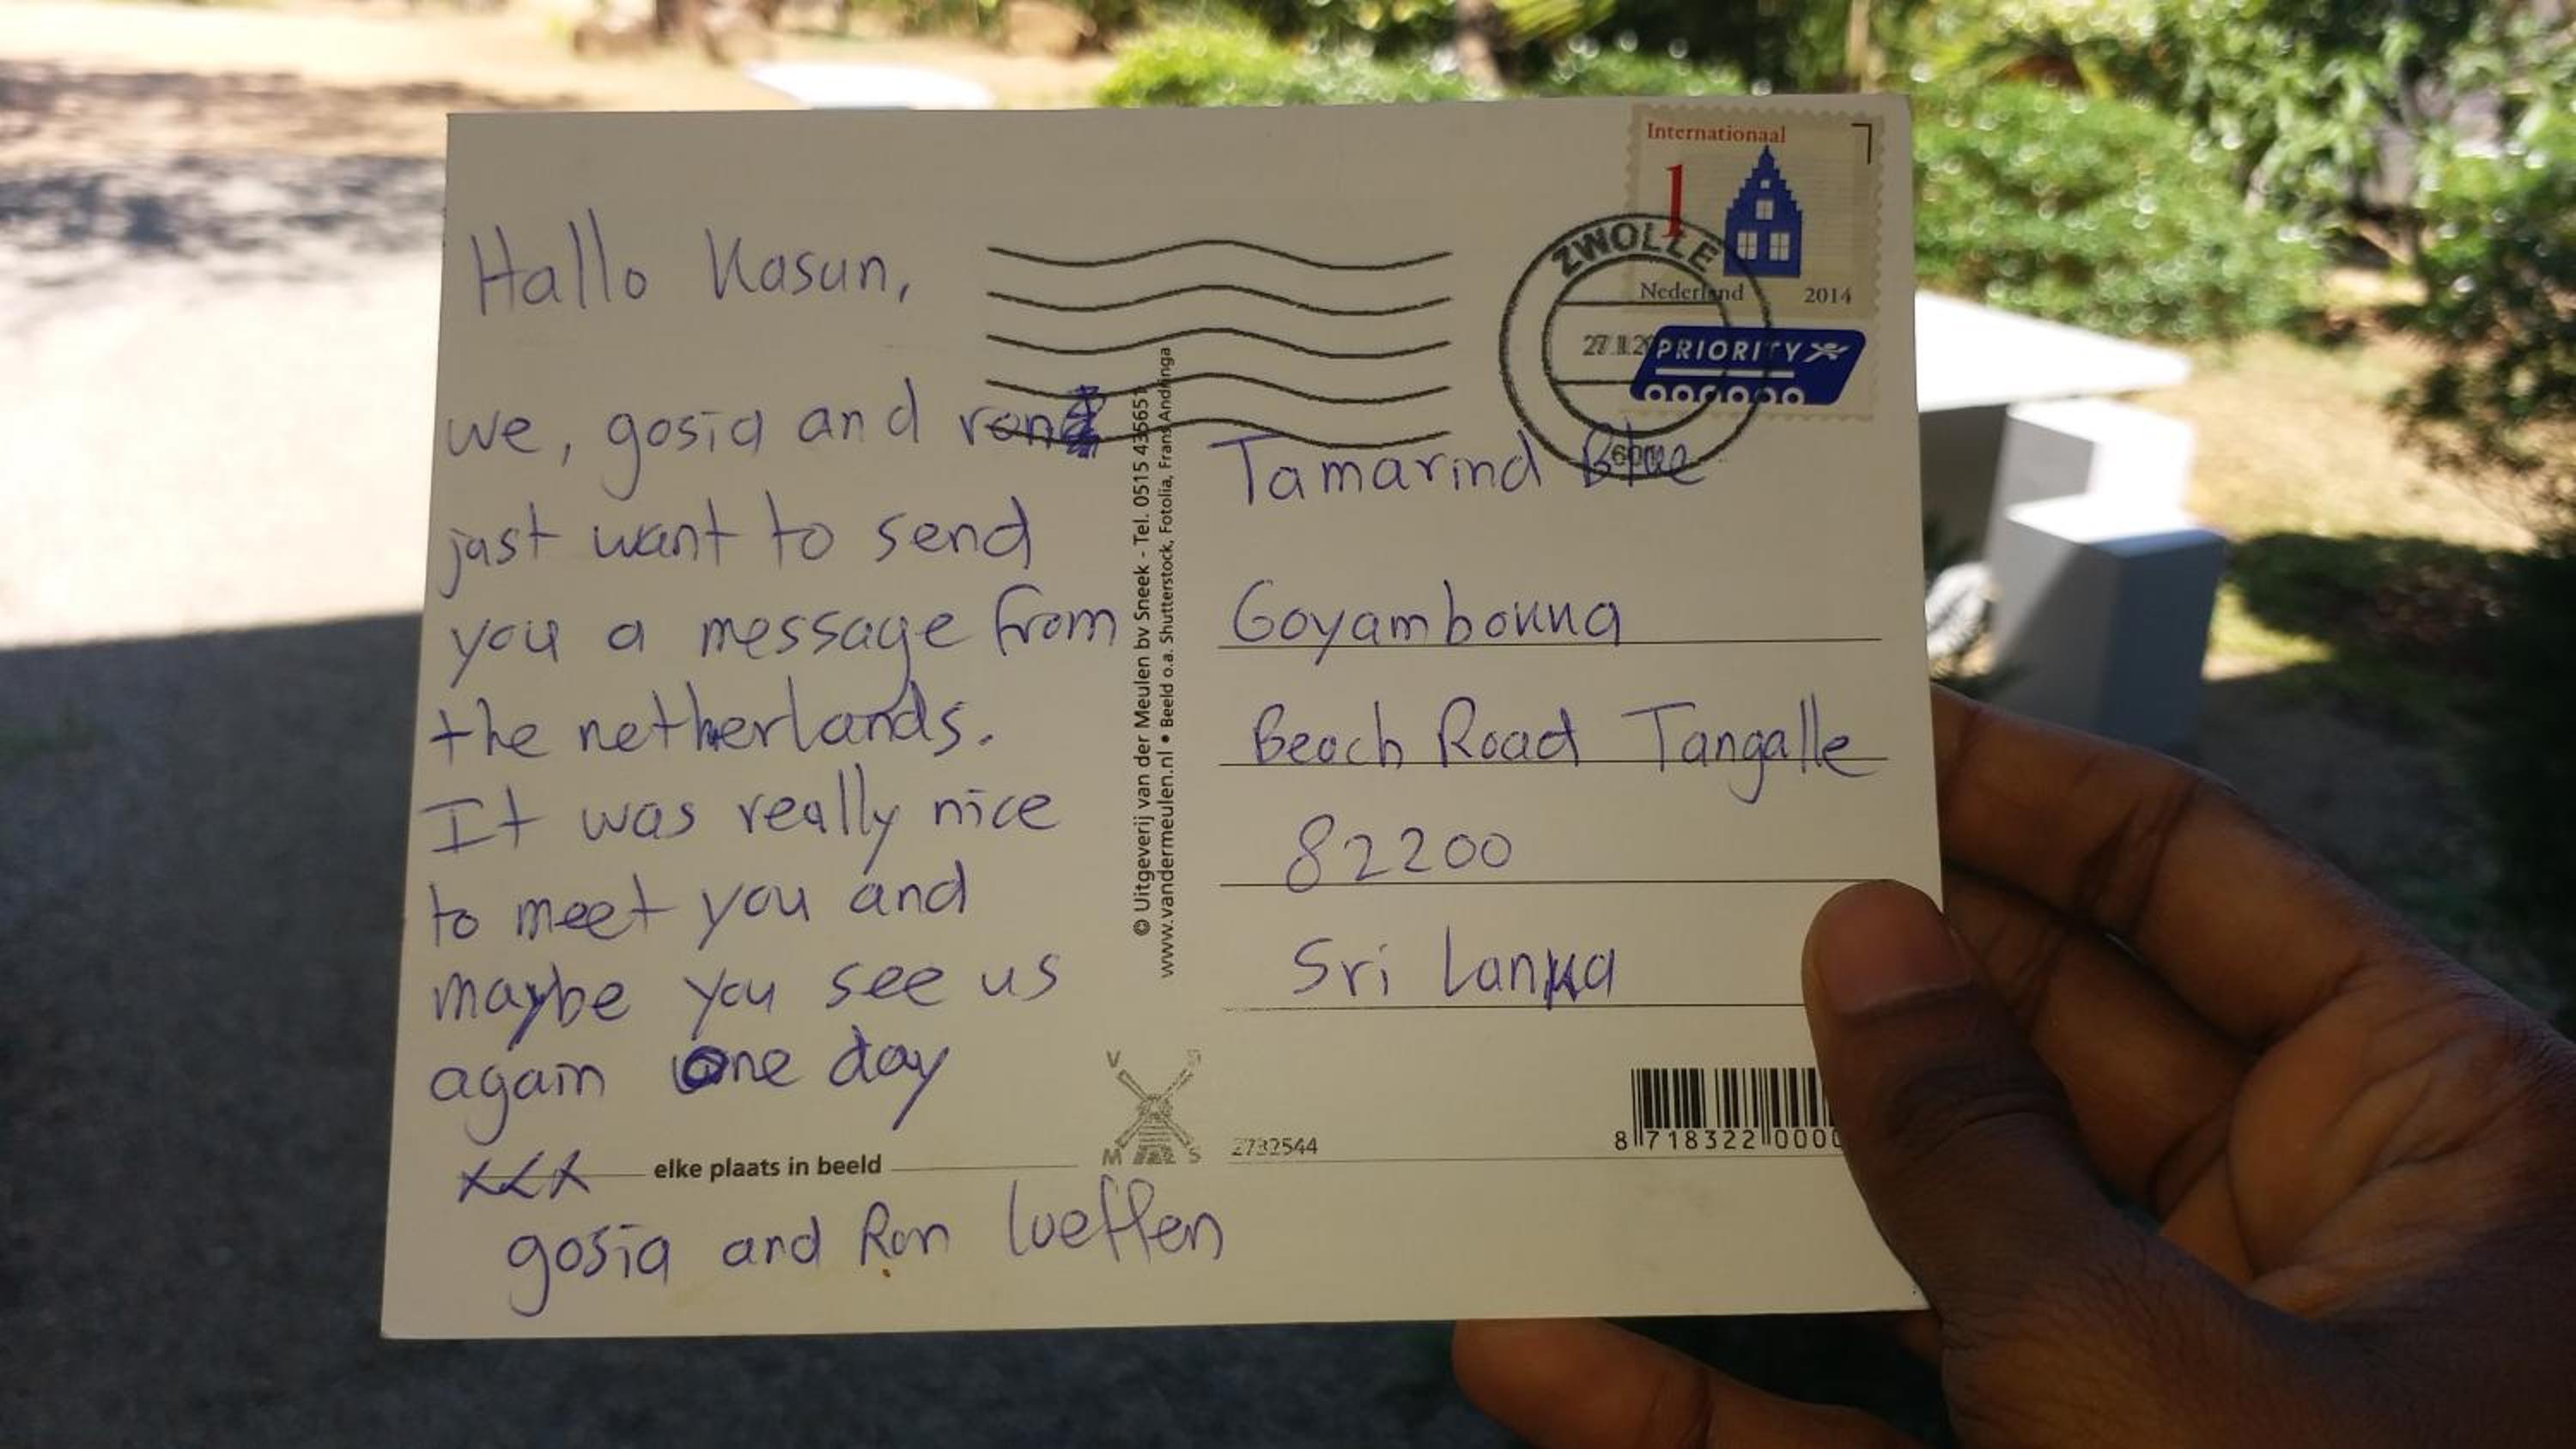 Hallo Kasun,
we, gosia and ron
just want to send
you a message from
the netherlands.
It was really nice
to meet you and
maybe you see us
again one day
xxx
elke plaats in beeld
gosia and Ron lueffen
© Uitgeverij van der Meulen bv Sneek - Tel. 0515 435651
www.vandermeulen.nl • Beeld o.a. Shutterstock, Fotolia, Frans Andringa
V
M S
Internationaal
1
Nederland 2014
ZWOLLE
PRIORITY
Tamarind Blue
Goyambokka
Beach Road Tangalle
82200
Sri Lanka
2732544
8 718322 000